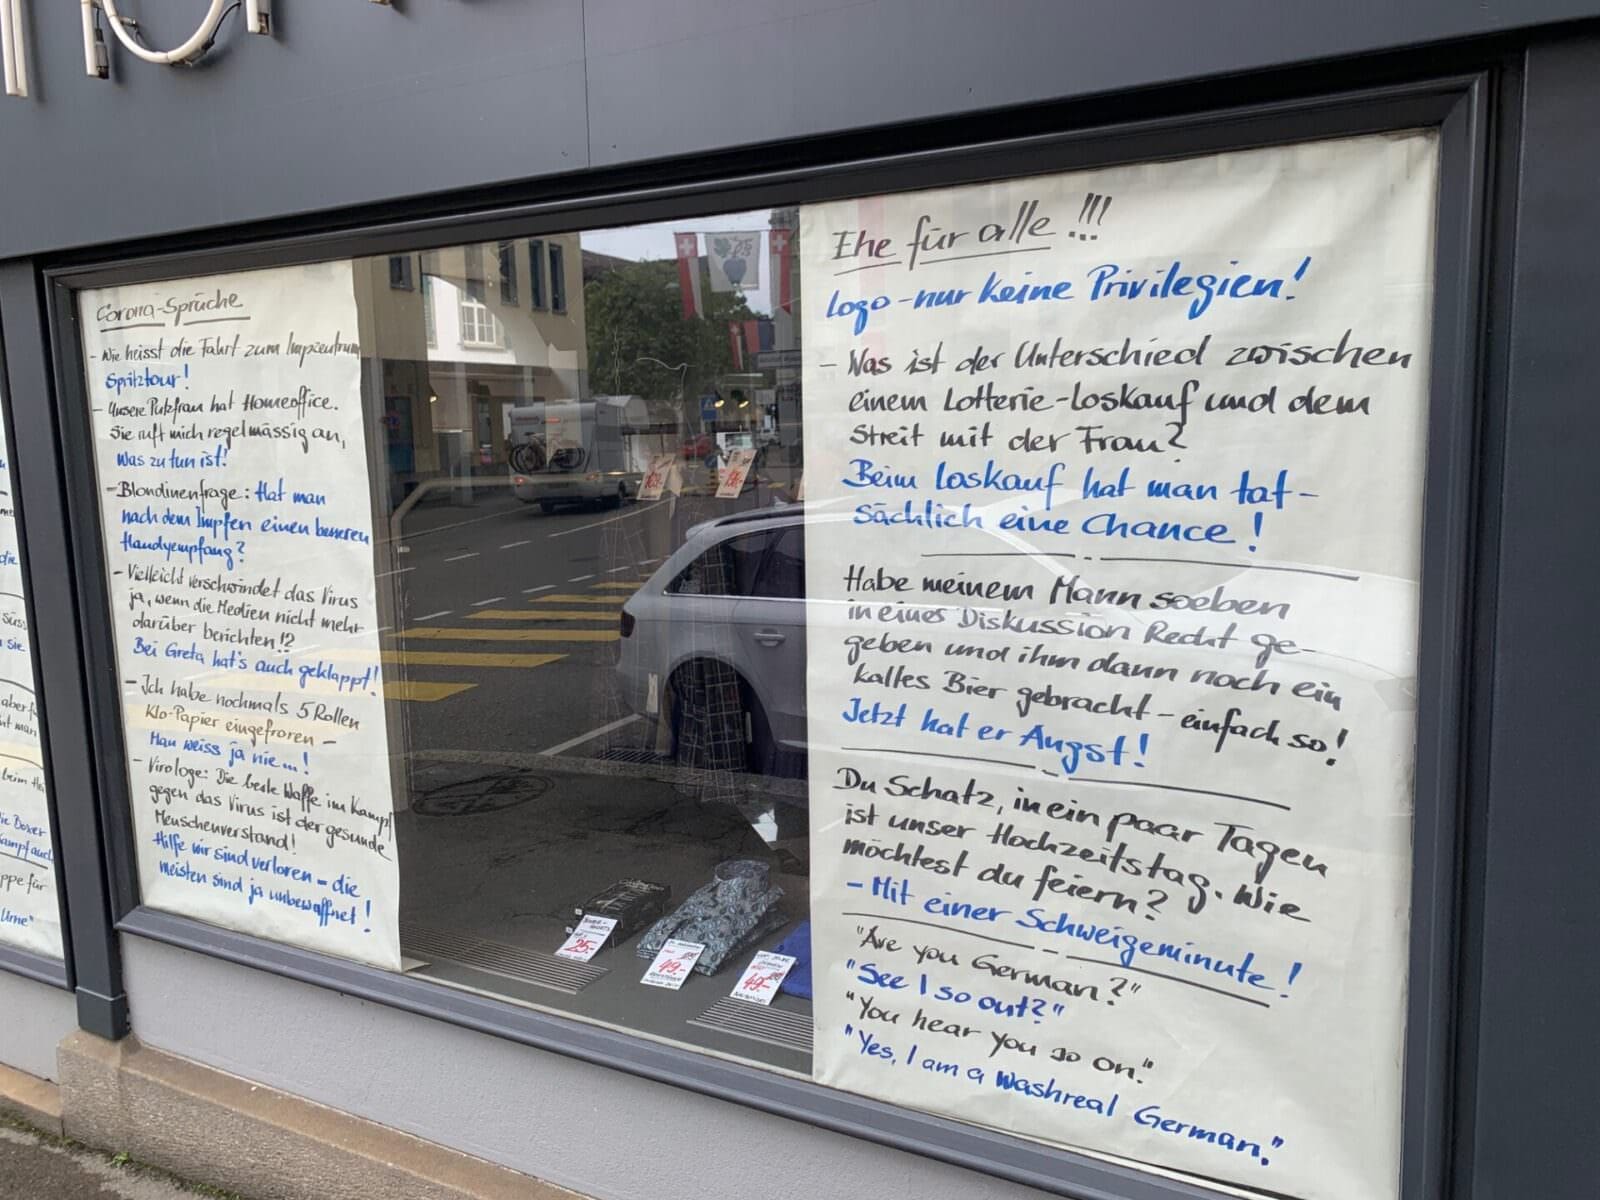 Corona-Sprüche
- Wie heisst die Fahrt zum Impzentrum
Spritztour!
- Unsere Putzfrau hat Homeoffice.
Sie ruft mich regelmässig an,
was zu tun ist!
- Blondinenfrage: Hat man
nach dem Impfen einen besseren
Handyempfang?
- Vielleicht verschwindet das Virus
ja, wenn die Medien nicht mehr
darüber berichten!?
Bei Greta hat's auch geklappt!
- Ich habe nochmals 5 Rollen
Klo-Papier eingefroren -
Man weiss ja nie...!
- Virologe: Die beste Waffe im Kampf
gegen das Virus ist der gesunde
Menschenverstand!
Hilfe wir sind verloren - die
meisten sind ja unbewaffnet!
Ehe für alle!!!
Logo - nur keine Privilegien!
- Was ist der Unterschied zwischen
einem Lotterie-Loskauf und dem
Streit mit der Frau?
Beim Loskauf hat man tat-
sächlich eine Chance!
Habe meinem Mann soeben
in eines Diskussion Recht ge-
geben und ihm dann noch ein
kaltes Bier gebracht - einfach so!
Jetzt hat er Angst!
Du Schatz, in ein paar Tagen
ist unser Hochzeitstag. Wie
möchtest du feiern?
- Mit einer Schweigeminute!
"Are you German?"
"See I so out?"
"You hear you so on."
"Yes, I am a washreal German."
25.-
49.-
49.-